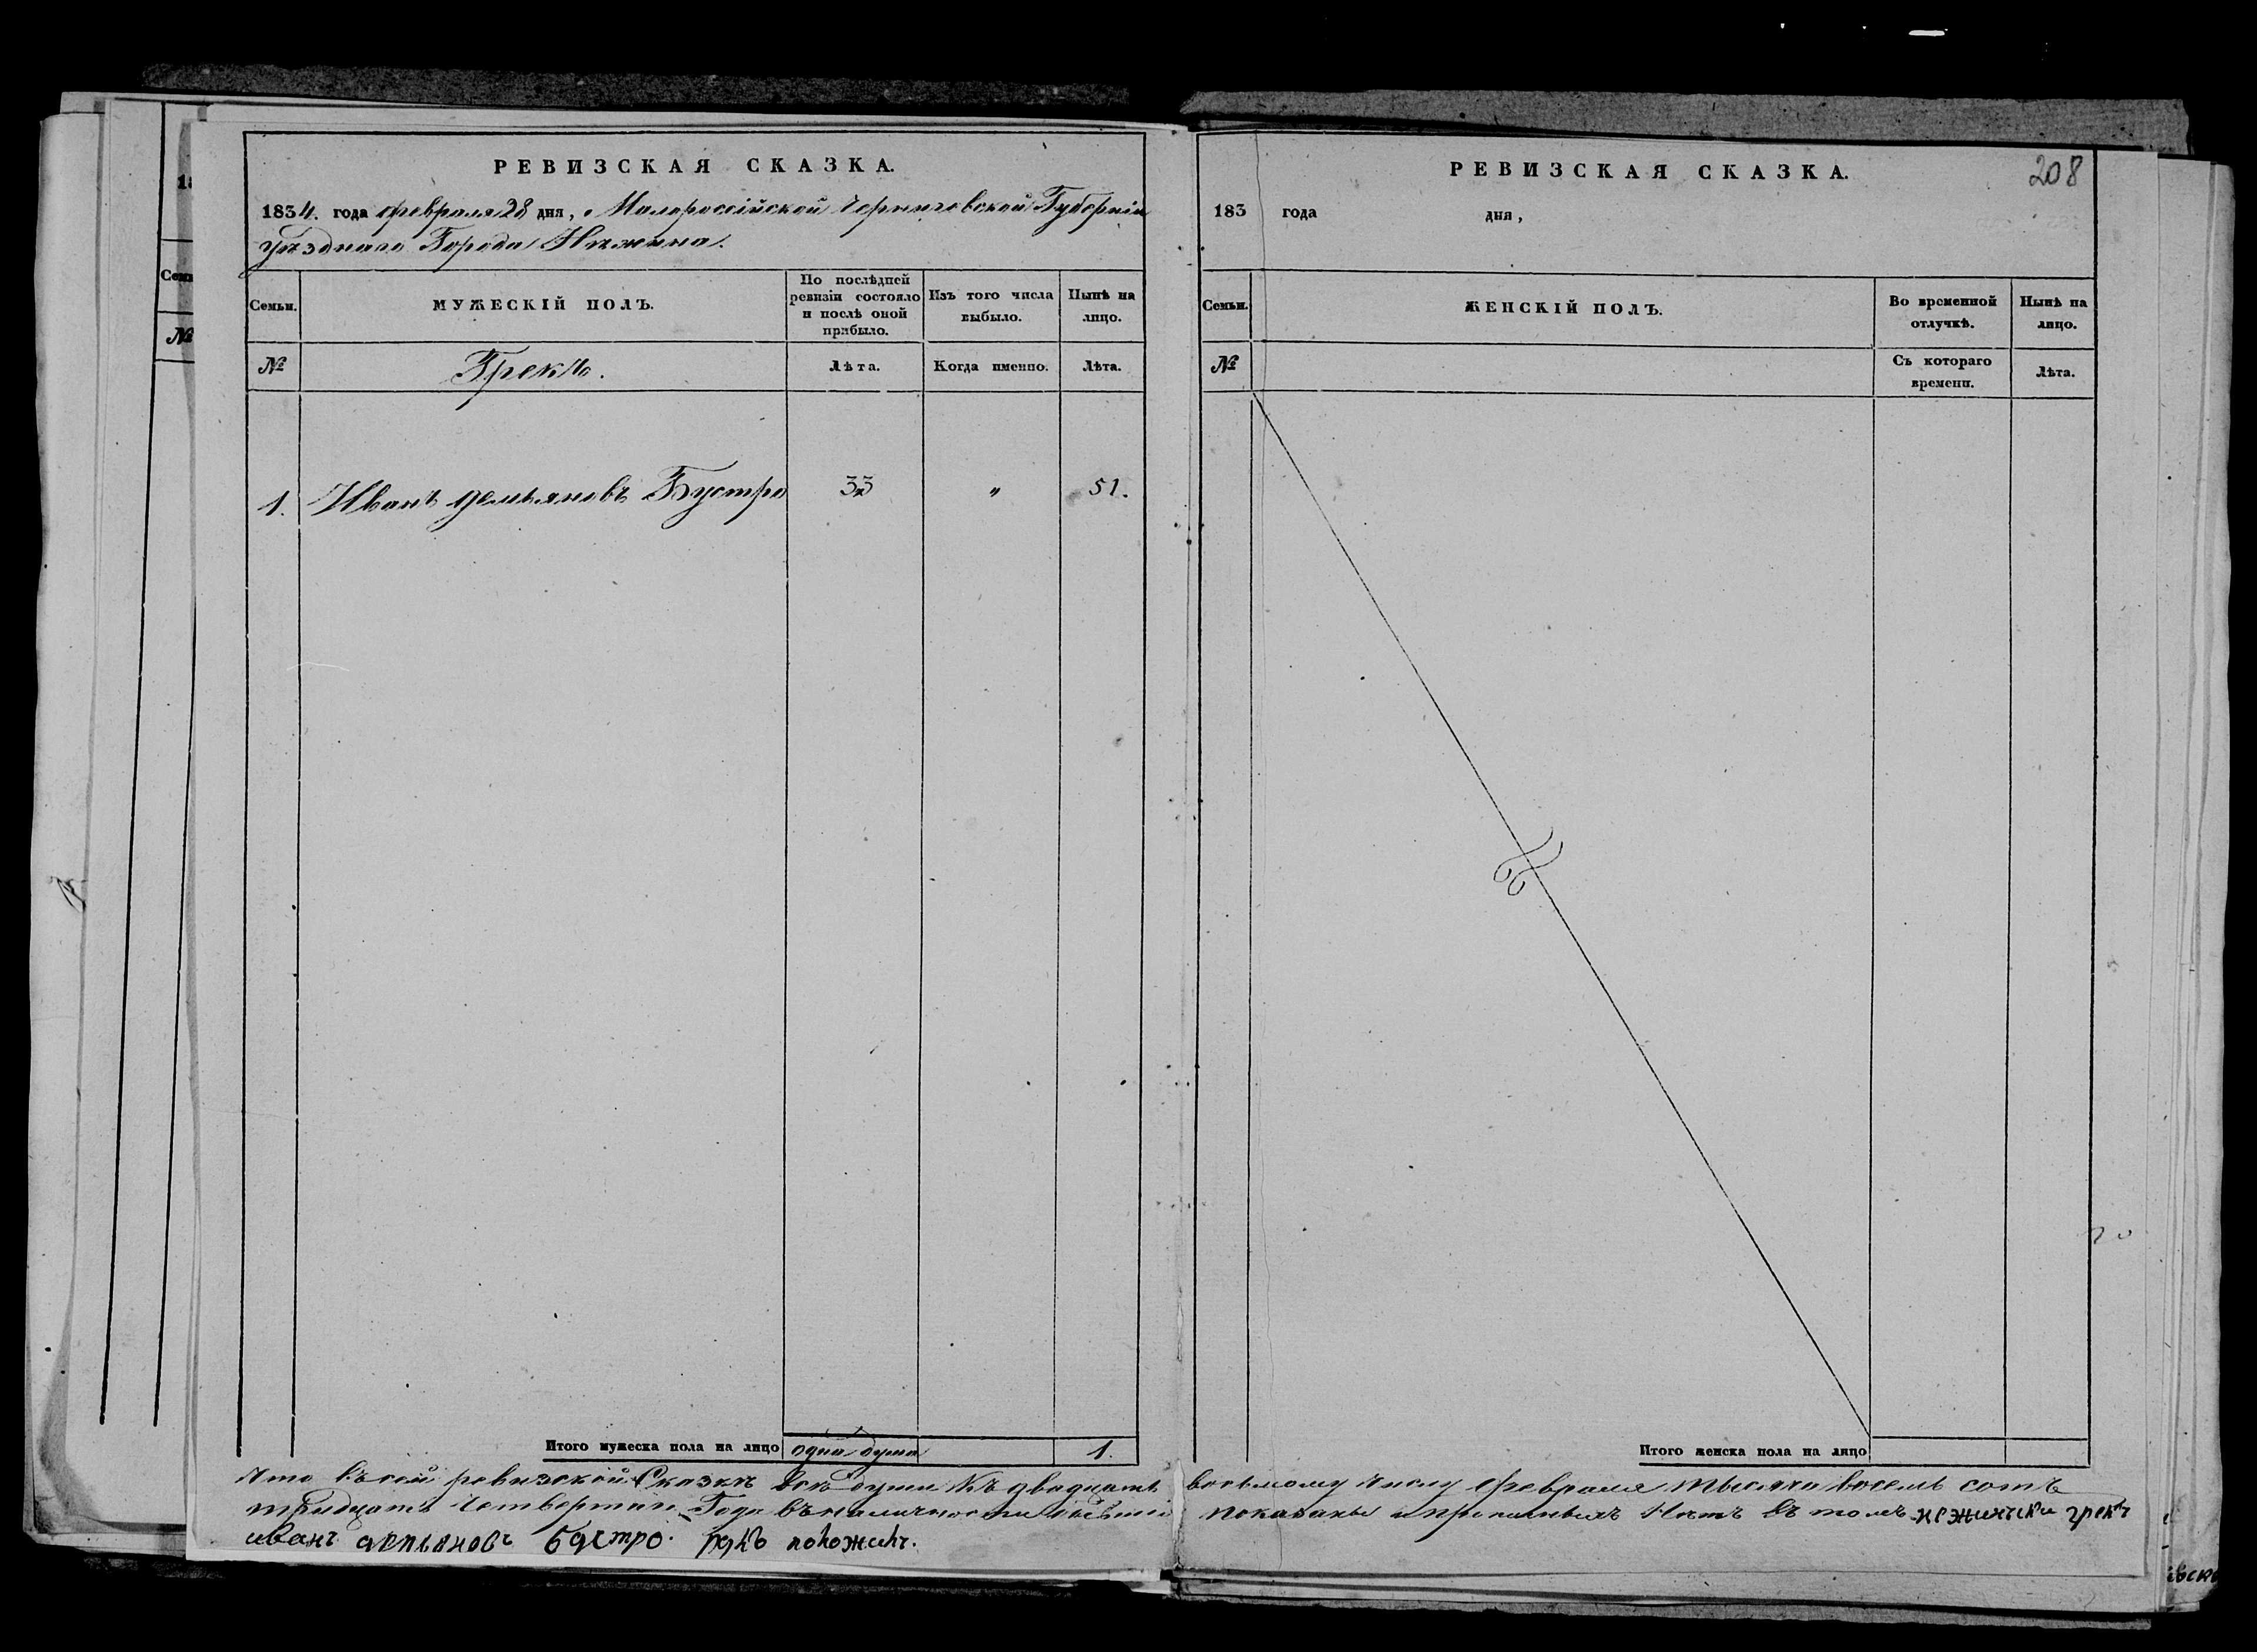 РЕВИЗСКАЯ СКАЗКА.
1834. года февраля 28 дня, Малороссійской Черниговской Губерніи
уѣзднаго Города Нѣжина.
Семьи.
МУЖЕСКІЙ ПОЛЪ.
По послѣдней
ревизіи состояло
и послѣ оной
прибыло.
Изъ того числа
выбыло.
Нынѣ на
лицо.
№
Грекъ.
Лѣта.
Когда именно.
Лѣта.
1. Иванъ Демьяновъ Бустро 33 " 51.
Итого мужеска пола на лицо одна душа 1.
РЕВИЗСКАЯ СКАЗКА.
208
183 года дня,
Семьи.
ЖЕНСКІЙ ПОЛЪ.
Во временной
отлучкѣ.
Нынѣ на
лицо.
№
Съ котораго
времени.
Лѣта.
Итого женска пола на лицо
Что въ сей ревизской Сказкѣ всѣ души къ двадцать восьмому числу февраля тысяча восемь сотъ
тридцать четвертаго Года въ наличности показаны и прописныхъ Нѣтъ въ томъ нежинскій грекъ
иванъ демьяновъ бустро. руку положилъ.